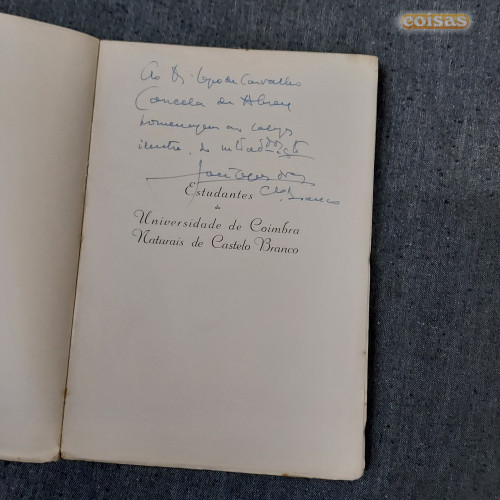 coisas
Ao Dr. Lopo de Carvalho
Cancela de Abreu
homenagem ao colega
ilustre, do
José Lopes Dias
C. Branco
Estudantes
da
Universidade de Coimbra
Naturais de Castelo Branco